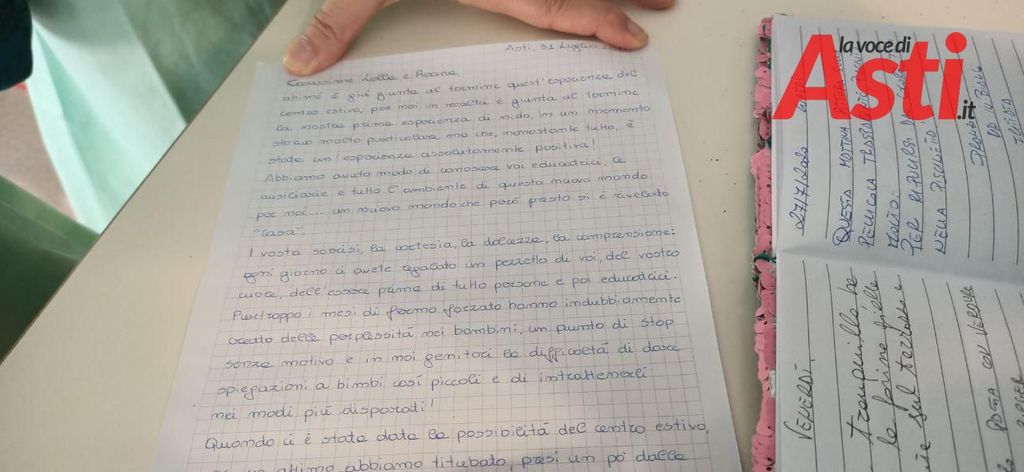 Asti, 31 Luglio
Carissime Lella e Roana,
ahimè è già giunta al termine quest'esperienza del
centro estivo, per noi in realtà è giunta al termine
la nostra prima esperienza di nido, in un momento
storico molto particolare ma che, nonostante tutto, è
stata un'esperienza assolutamente positiva!
Abbiamo avuto modo di conoscere voi educatrici, le
ausiliarie e tutto l'ambiente di questo nuovo mondo
per noi... un nuovo mondo che però presto si è rivelato
"casa".
I vostri sorrisi, la cortesia, la dolcezza, la comprensione:
ogni giorno ci avete regalato un pezzetto di voi, del vostro
cuore, dell'essere prima di tutto persone e poi educatrici.
Purtroppo i mesi di fermo forzato hanno indubbiamente
creato delle perplessità nei bambini, un punto di stop
senza motivo e in noi genitori la difficoltà di dare
spiegazioni a bimbi così piccoli e di intrattenerli
nei modi più disparati!
Quando ci è stata data la possibilità del centro estivo,
attimo abbiamo titubato, presi un pò dalle
la voce di
Asti.it
27/7/2020
QUESTA MATTINA
PELLICOLA TRASPARENTE
PER
NELLA
VENERDÌ
tranquillo ho
le farine gialle
sul
PASTA CON VERDURE